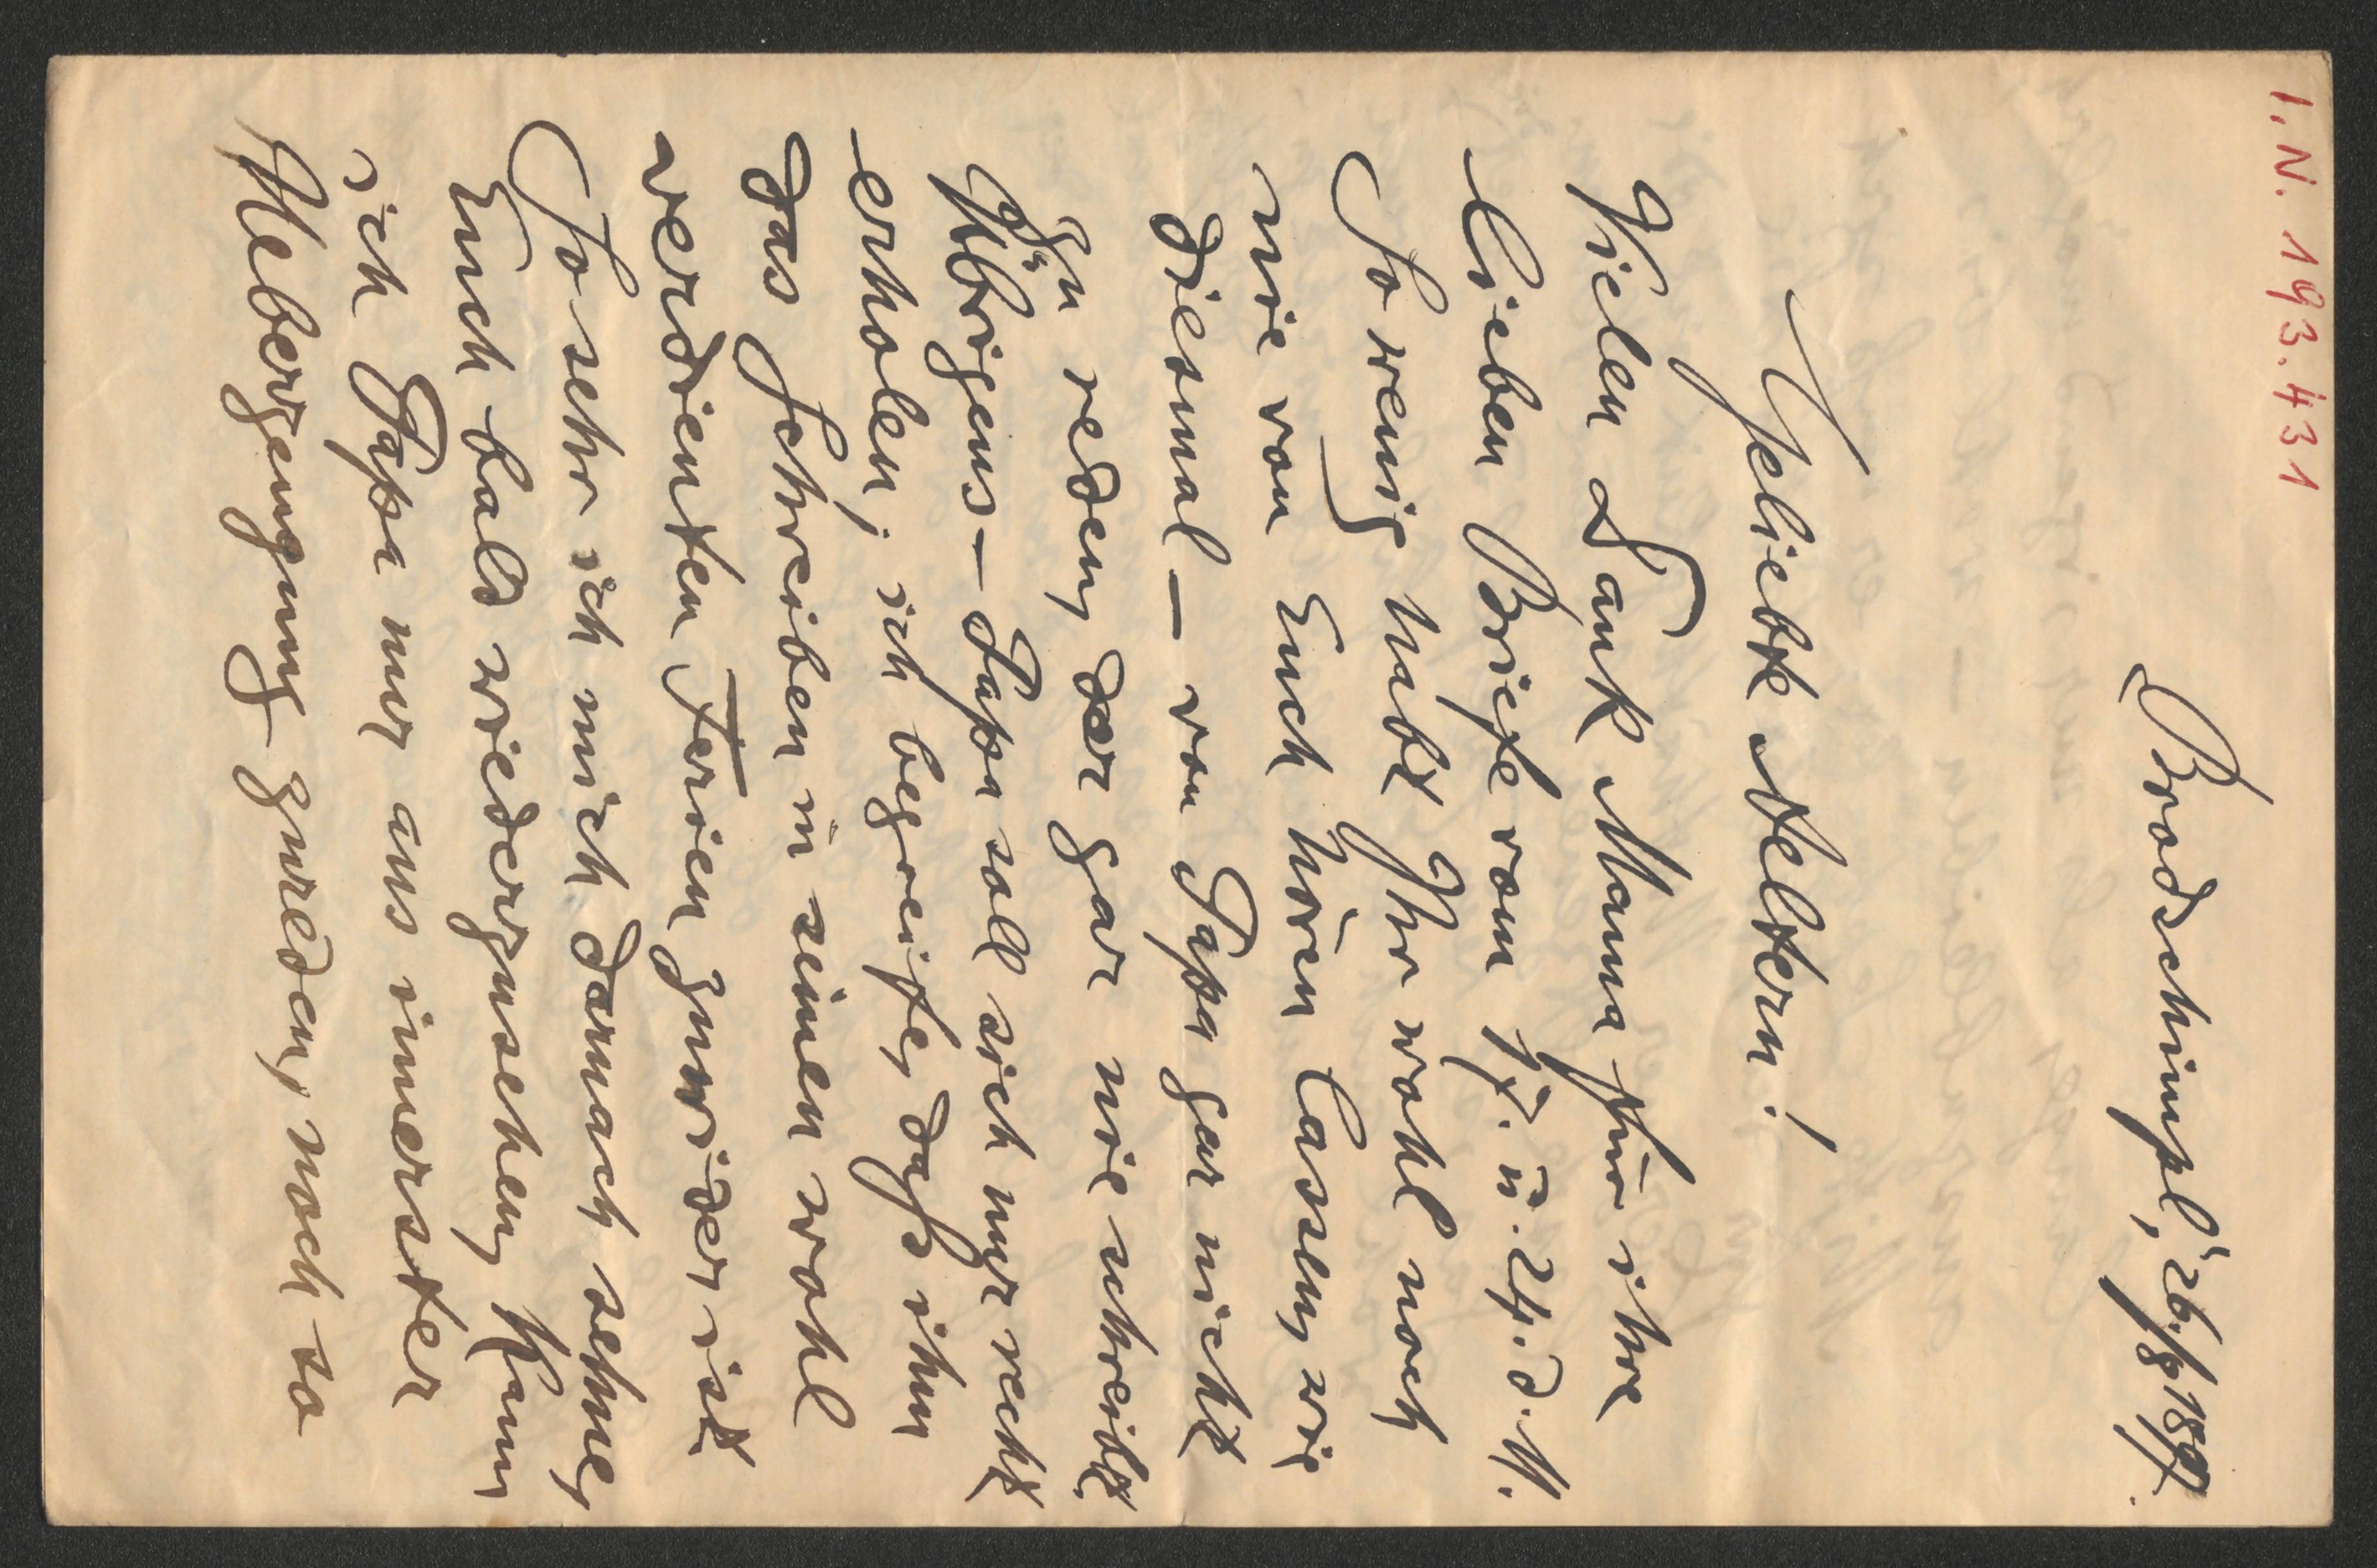 I. N. 193.431
Brodschimpl, 26./8 1897.
Geliebte Aeltern!
Vielen Dank Mama für ihre
lieben Briefe vom 17. u. 24. d. M.
So wenig habt Ihr wohl noch
nie von Euch hören lassen, wie
diesmal – von Papa gar nicht
zu reden, der gar nie schreibt.
Übrigens – Papa soll sich nur recht
erholen; ich begreife, daſs ihm
das Schreiben in seinen wohl
verdienten Ferien zuwider ist
So sehr ich mich darnach sehne,
Euch bald wiederzusehen, kann
ich Papa nur aus innerster
Ueberzeugung zureden, noch so